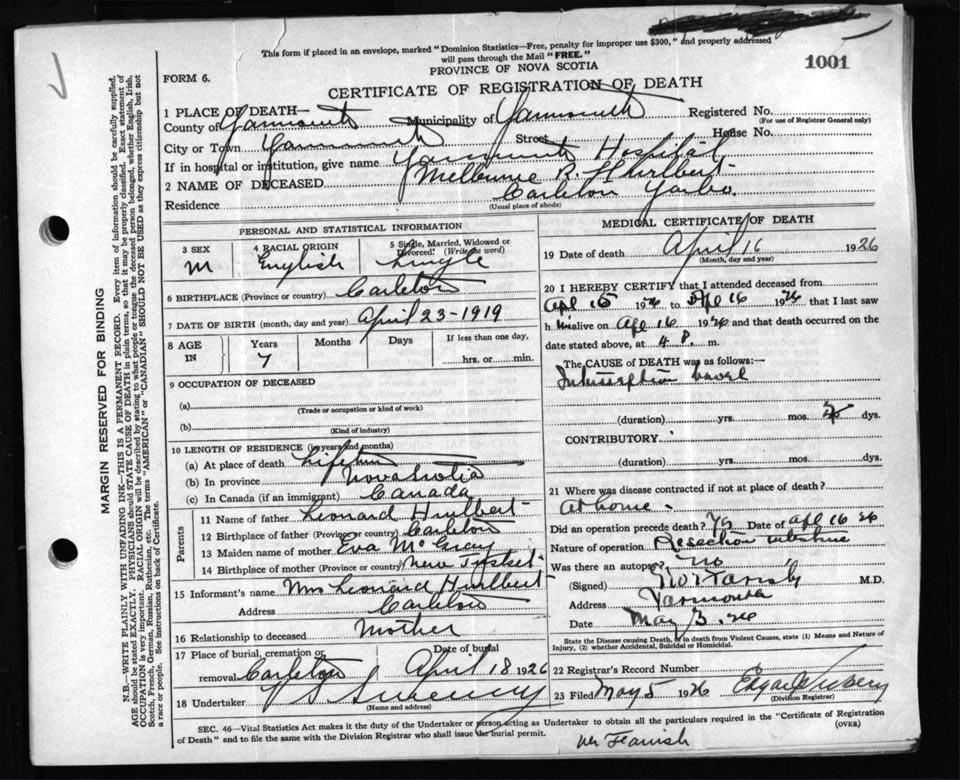 This form if placed in an envelope, marked "Dominion Statistics—Free, penalty for improper use $300," and properly addressed
will pass through the Mail "FREE."
1001
FORM 6.
PROVINCE OF NOVA SCOTIA
CERTIFICATE OF REGISTRATION OF DEATH
1 PLACE OF DEATH—
County of Yarmouth Municipality of Yarmouth Registered No.
(For use of Registrar General only)
City or Town Yarmouth Street House No.
If in hospital or institution, give name Yarmouth Hospital
2 NAME OF DECEASED Melbourne B. Hurlbert
Residence Carleton Yar Co.
(Usual place of abode)
PERSONAL AND STATISTICAL INFORMATION
3 SEX 4 RACIAL ORIGIN 5 Single, Married, Widowed or Divorced: (Write the word)
M English Single
6 BIRTHPLACE (Province or country) Carleton
7 DATE OF BIRTH (month, day and year) April 23-1919
8 AGE IN Years Months Days If less than one day,
7 hrs. or min.
9 OCCUPATION OF DECEASED
(a)
(Trade or occupation or kind of work)
(b)
(Kind of industry)
10 LENGTH OF RESIDENCE (in years and months)
(a) At place of death Lifetime
(b) In province Nova Scotia
(c) In Canada (if an immigrant) Canada
Parents
11 Name of father Leonard Hurlbert
12 Birthplace of father (Province or country) Carleton
13 Maiden name of mother Eva McGray
14 Birthplace of mother (Province or country) New Tusket
15 Informant's name Mrs Leonard Hurlbert
Address Carleton
16 Relationship to deceased Mother
17 Place of burial, cremation or removal Carleton Date of burial April 18 1926
18 Undertaker V S Sweeney
(Name and address)
MEDICAL CERTIFICATE OF DEATH
19 Date of death April 16 1926
(Month, day and year)
20 I HEREBY CERTIFY that I attended deceased from
Apl 15 1926 to Apl 16 1926 that I last saw
h im alive on Apl 16 1926 and that death occurred on
date stated above, at 4 P. m.
The CAUSE OF DEATH was as follows:—
Intussusception bowel
(duration) yrs. mos. dys.
CONTRIBUTORY
(duration) yrs. mos. dys.
21 Where was disease contracted if not at place of death?
At home
Did an operation precede death? Yes Date of Apl 16 26
Nature of operation Resection intestine
Was there an autopsy? no
(Signed) M.D.
Address Yarmouth
Date May 3. 26
State the Disease causing Death, or in death from Violent Causes, state (1) Means and Nature of
Injury, (2) whether Accidental, Suicidal or Homicidal.
22 Registrar's Record Number
23 Filed May 5 1926
(Division Registrar)
SEC. 46—Vital Statistics Act makes it the duty of the Undertaker or person acting as Undertaker to obtain all the particulars required in the "Certificate of Registration
of Death" and to file the same with the Division Registrar who shall issue the burial permit.
(OVER)
MARGIN RESERVED FOR BINDING
N.B.—WRITE PLAINLY WITH UNFADING INK—THIS IS A PERMANENT RECORD. Every item of information should be carefully supplied.
AGE should be stated EXACTLY. PHYSICIANS should STATE CAUSE OF DEATH in plain terms, so that it may be properly classified. Exact statement of
OCCUPATION is very important. RACIAL ORIGIN will be described by stating to what people or tongue the deceased person belonged, whether English, Irish,
Scotch, French, German, Russian, Ruthenian, etc. The terms "AMERICAN" or "CANADIAN" SHOULD NOT BE USED as they express citizenship but not
a race or people. See instructions on back of Certificate.